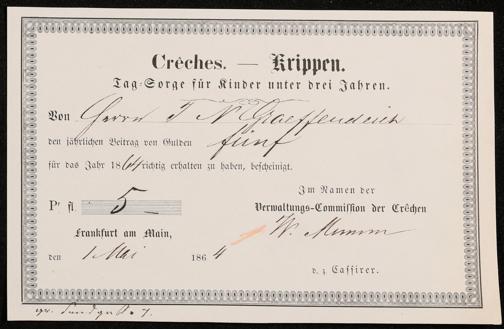 Crêches. — Krippen.
Tag-Sorge für Kinder unter drei Jahren.
Von Herrn J N
den jährlichen Beitrag von Gulden fünf
für das Jahr 1864 richtig erhalten zu haben, bescheinigt.
Im Namen der
Pr fl. 5 —
Verwaltungs-Commission der Crêchen
Frankfurt am Main,
W. Mumm
den 1 Mai 1864
d. z. Cassirer.